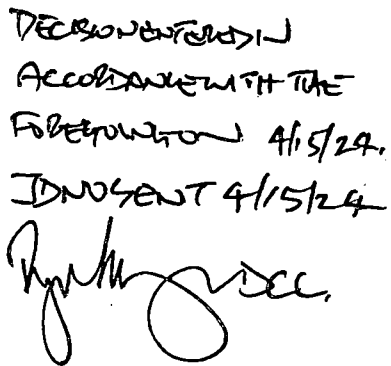 DECISION ENTERED IN
ACCORDANCE WITH THE
FOREGOING ON 4/15/24.
JDNO SENT 4/15/24
DCC.